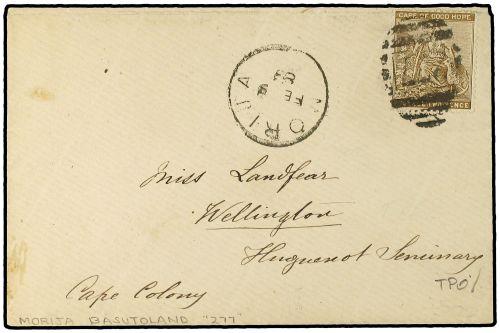 CAPE OF GOOD HOPE
PENCE
MORIJA
FE 9
Miss Landfear
Wellington
Huguenot Seminary
TPO/
Cape Colony
MORIJA BASUTOLAND "277"